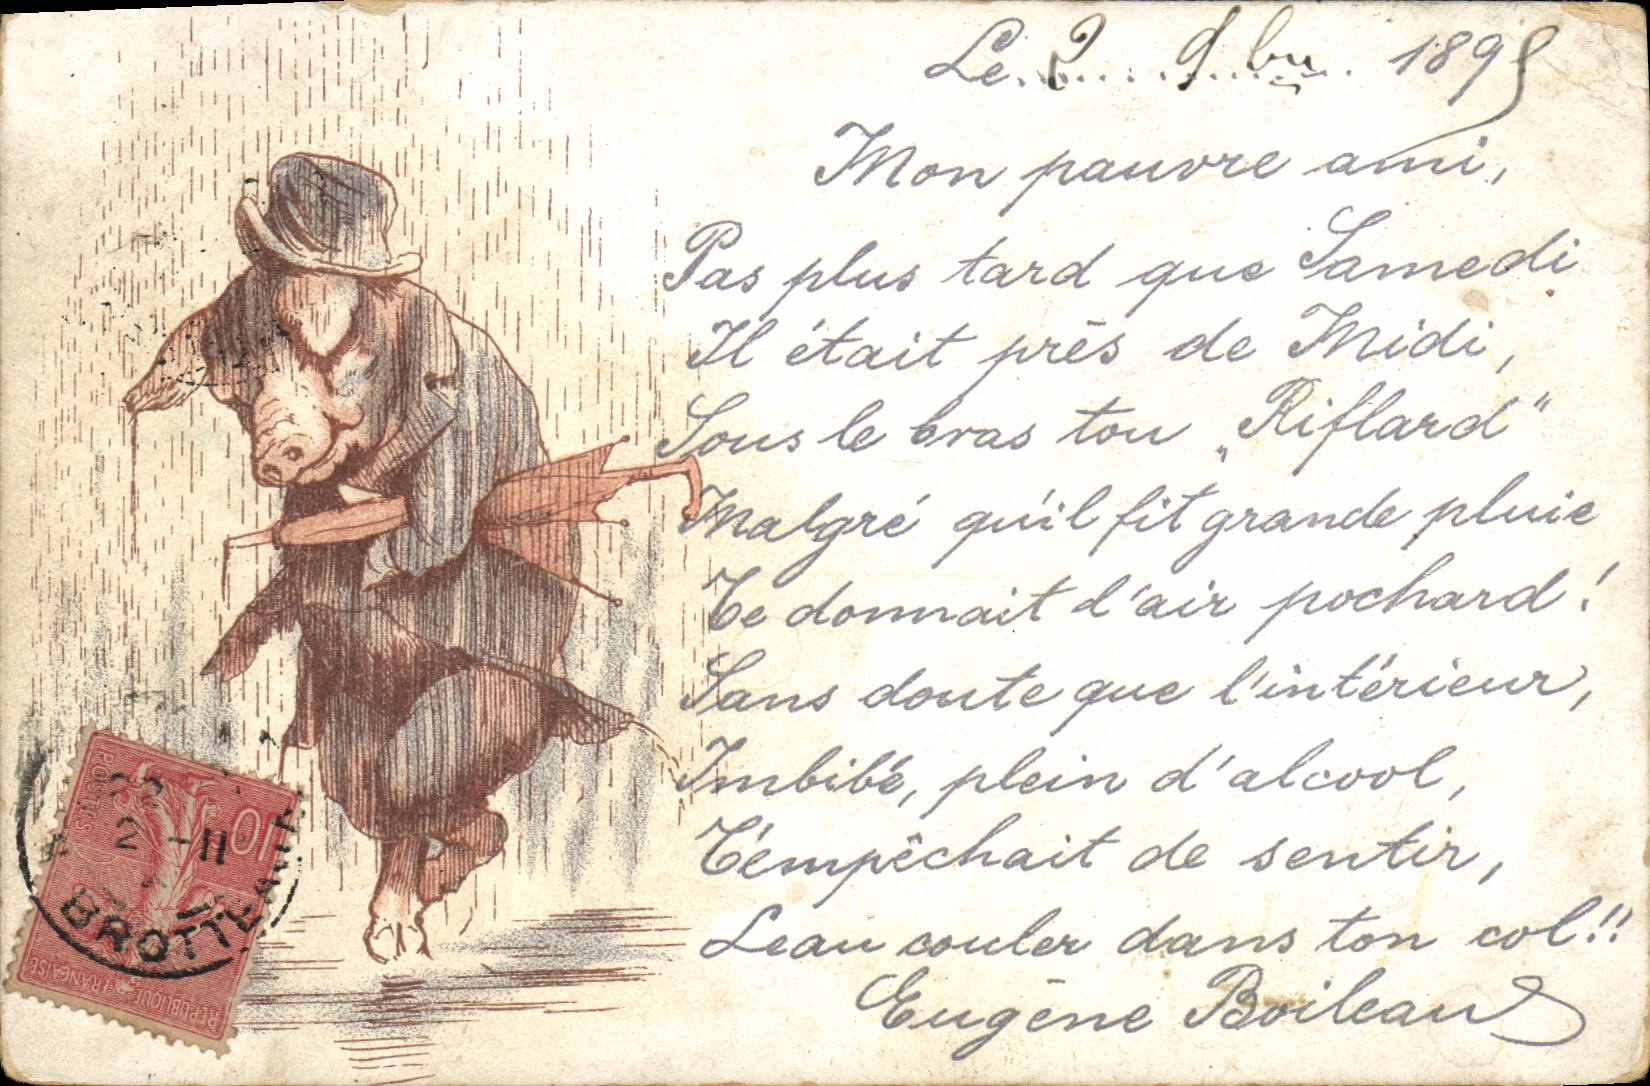 Le 2 9bre 1895
Mon pauvre ami,
Pas plus tard que Samedi
Il était près de Midi,
Sous le bras ton „Riflard“
Malgré qu'il fit grande pluie
Te donnait l'air pochard!
Sans doute que l'intérieur,
Imbibé, plein d'alcool,
T'empêchait de sentir,
Leau couler dans ton col!!
Eugène Boileau
POSTES
10
RÉPUBLIQUE FRANÇAISE
2 -11
BROTTEAUX